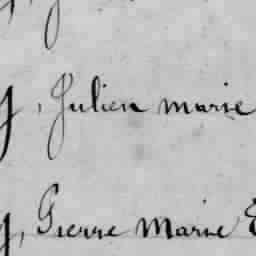 , Julien marie
, Pierre Marie